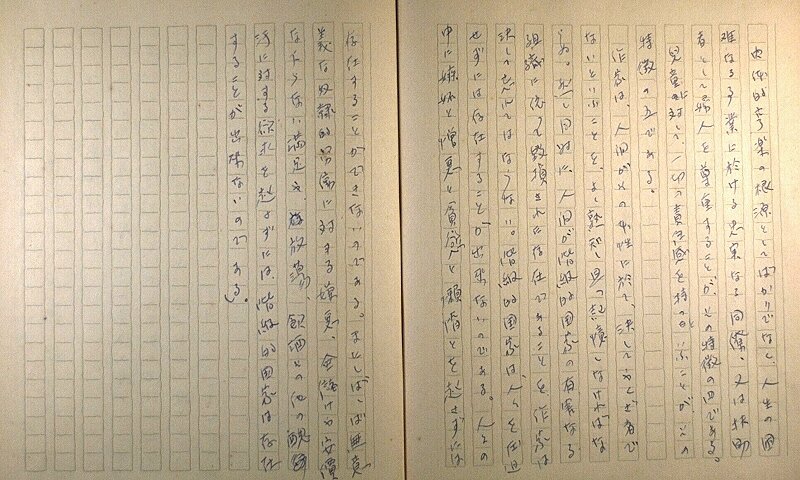 肉体的享楽の根源としてばかりでなく、人生の困
難なる事業に於ける忠実なる同僚、又は扶助
者として婦人を尊重することが、その特徴の四である。
児童に対して一切の責任感を持つといふことが、この
特徴の五である。
作家は、人間がその本性に於て、決してやくざ者で
ないといふことを、よく熟知し且つ記憶しなければな
らぬ。然し同時に、人間が階級的国家の有害なる
組織に依って毀損された存在であることを、作家は
決して忘れてはならない。階級的国家は、人々を圧迫
せずには存在することが出来ないのである。人々の
中に嫉妬と憎悪と貪慾と懶惰とを起さずには
存在することができないのである。又しばしば無意
義な奴隷的労働に対する嫌悪、金儲けや安価
な下らない満足や、放蕩、飲酒その他の醜
に対する欲求を起さずには、階級的国家は存在
することが出来ないのである)。